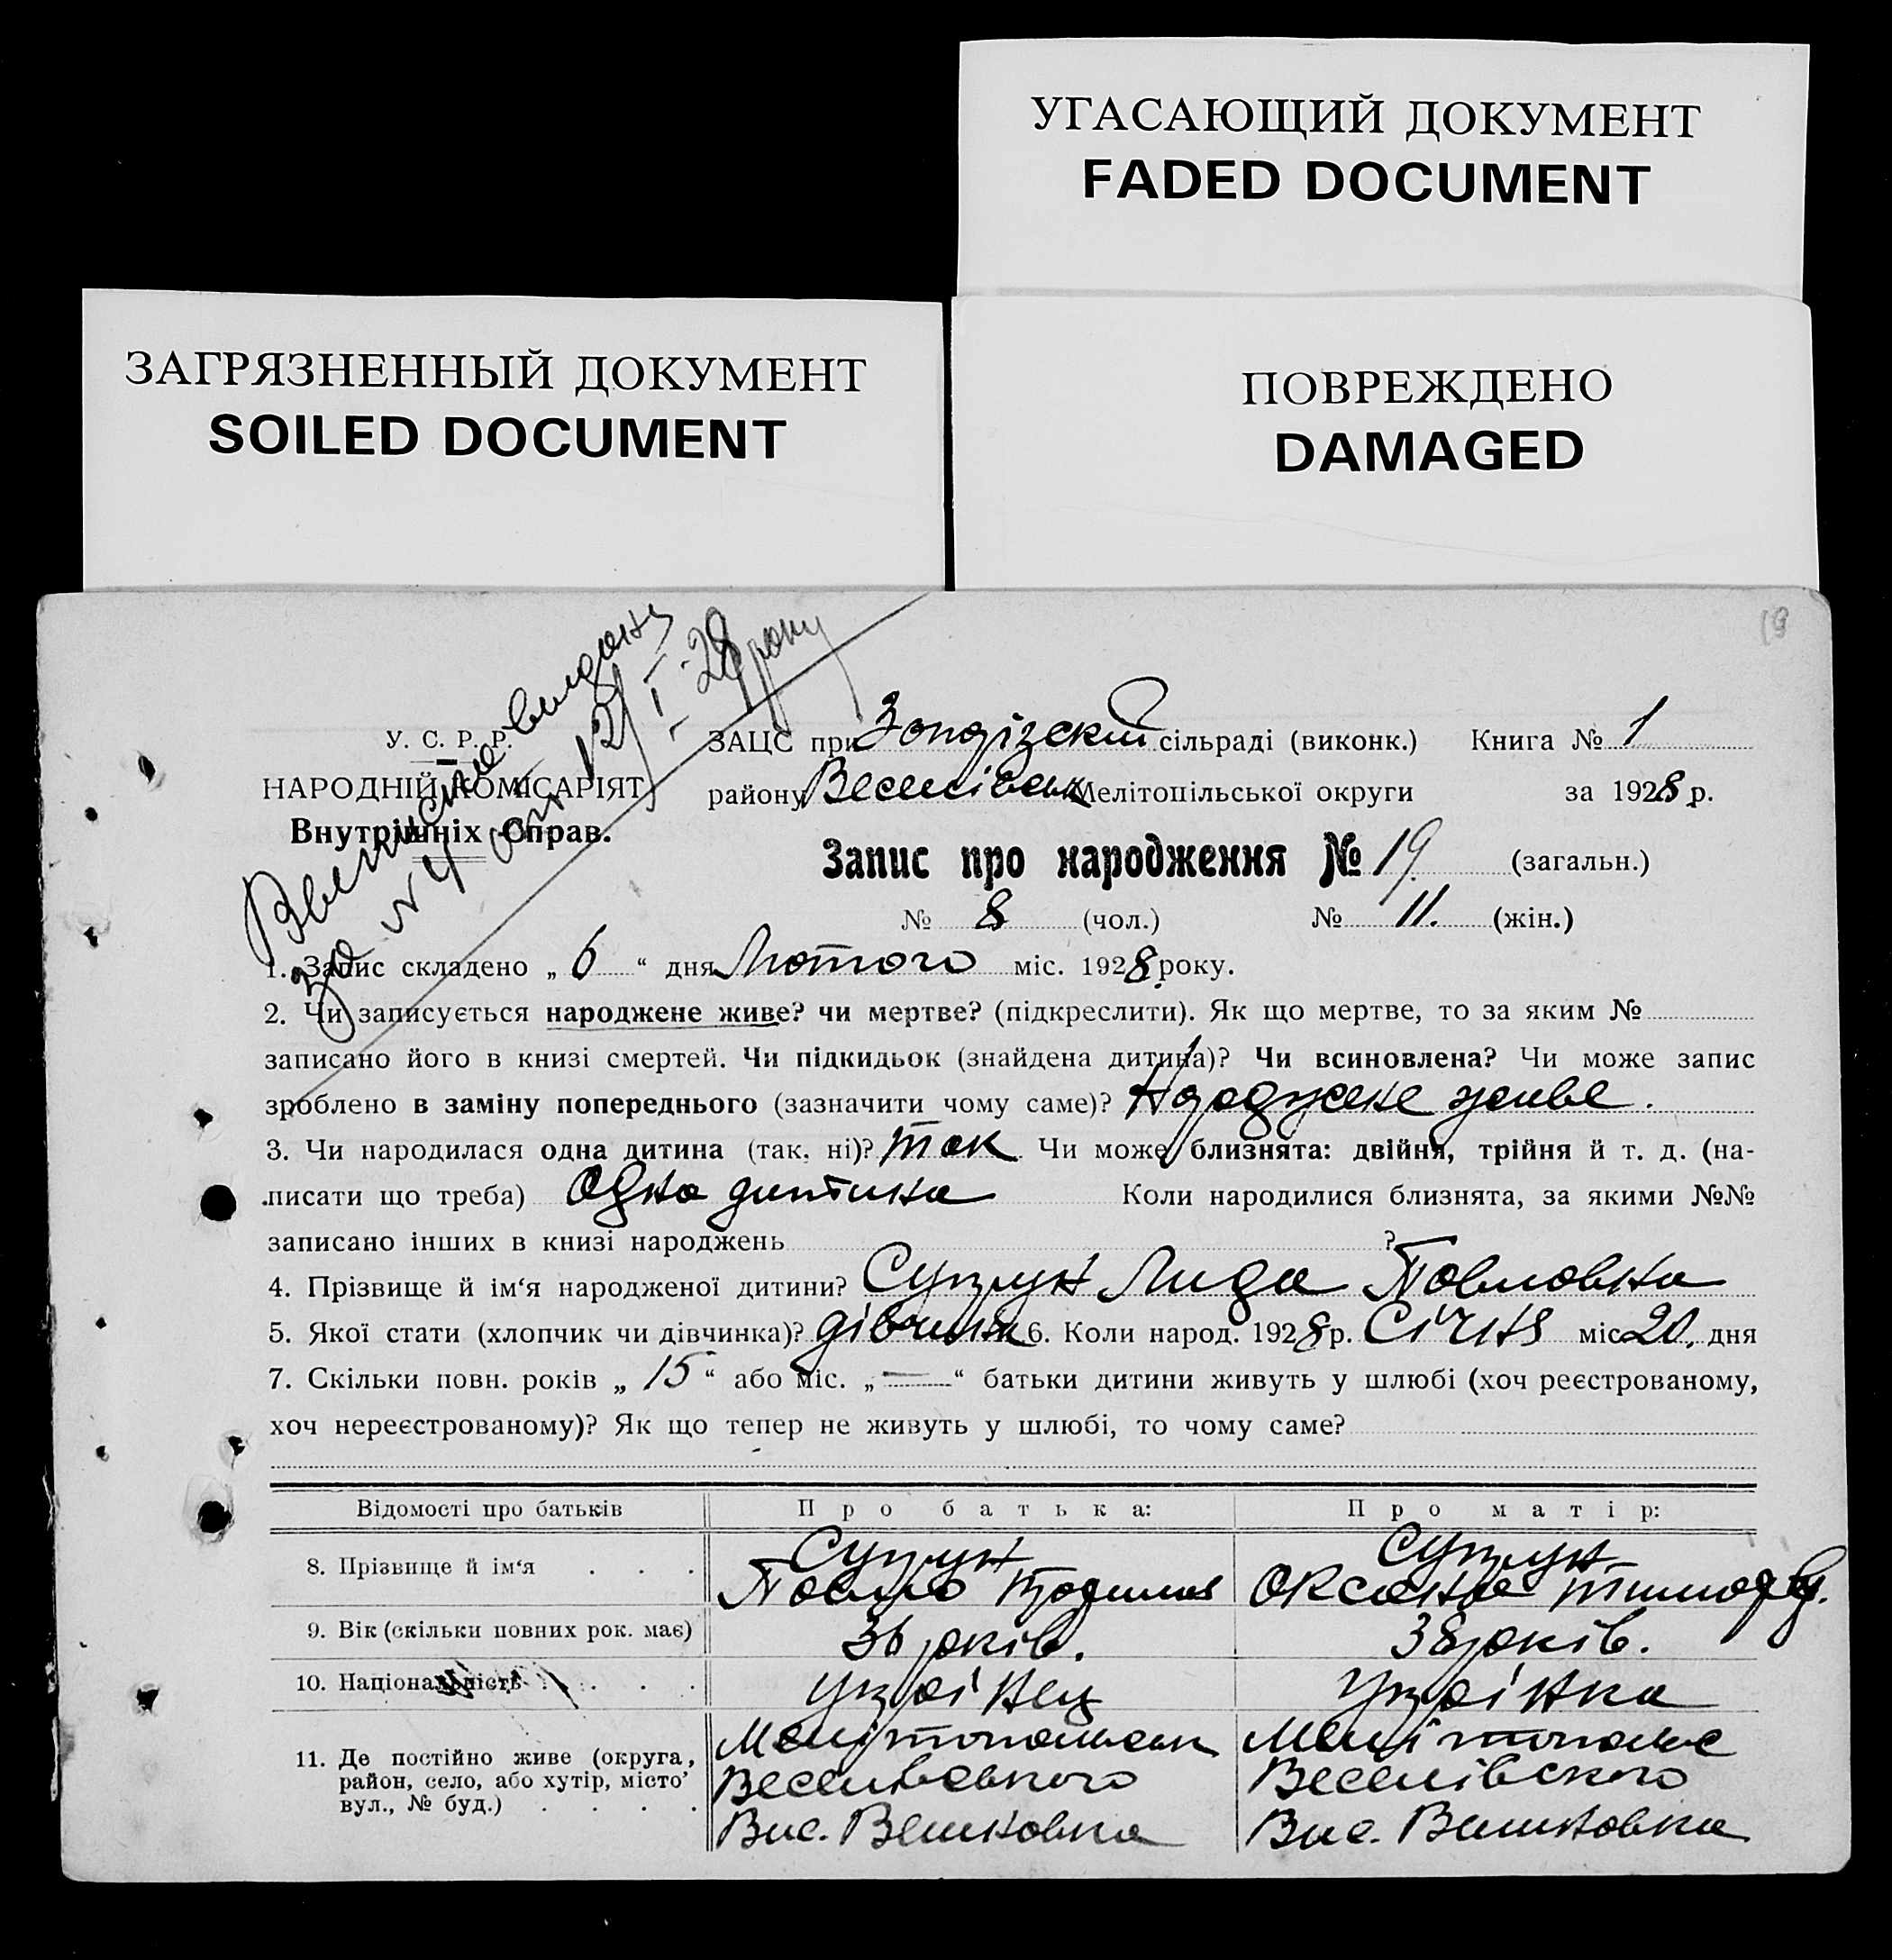 УГАСАЮЩИЙ ДОКУМЕНТ
FADED DOCUMENT
ЗАГРЯЗНЕННЫЙ ДОКУМЕНТ
SOILED DOCUMENT
ПОВРЕЖДЕНО
DAMAGED
за № 4 от 12/I-28 року
У. С. Р. Р.
НАРОДНІЙ КОМІСАРІЯТ
Внутрішніх Справ.
ЗАЦС при сільраді (виконк.) Книга № 1
району Веселівськ Мелітопільської округи за 1928 р.
Запис про народження № 19. (загальн.)
№ 8 (чол.) № 11. (жін.)
1. Запис складено „ 6 “ дня Лютого міс. 1928 року.
2. Чи записується народжене живе? чи мертве? (підкреслити). Як що мертве, то за яким №
записано його в книзі смертей. Чи підкидьок (знайдена дитина)? Чи всиновлена? Чи може запис
зроблено в заміну попереднього (зазначити чому саме)? Народжене живе.
3. Чи народилася одна дитина (так, ні)? так Чи може близнята: двійня, трійня й т. д. (на-
писати що треба) Одна дитина Коли народилися близнята, за якими №№
записано інших в книзі народжень ?
4. Прізвище й ім‘я народженої дитини? Супрун Лида Павловна
5. Якої стати (хлопчик чи дівчинка)? дівчина 6. Коли народ. 1928 р. Січня міс 20. дня
7. Скільки повн. років „ 15 “ або міс. „ — “ батьки дитини живуть у шлюбі (хоч реєстрованому,
хоч нереєстрованому)? Як що тепер не живуть у шлюбі, то чому саме?
Відомості про батьків Про батька: Про матір:
8. Прізвище й ім‘я . . . Супрун Супрун
Павло Оксана
9. Вік (скільки повних рок. має) 36 років. 38 років.
10. Національність . . . . Украінец Украінка
11. Де постійно живе (округа,
район, село, або хутір, місто
вул., № буд.) . . . .
Мелітопольск Мелітопольс
Веселівського Веселівского
Вис.
Вис.